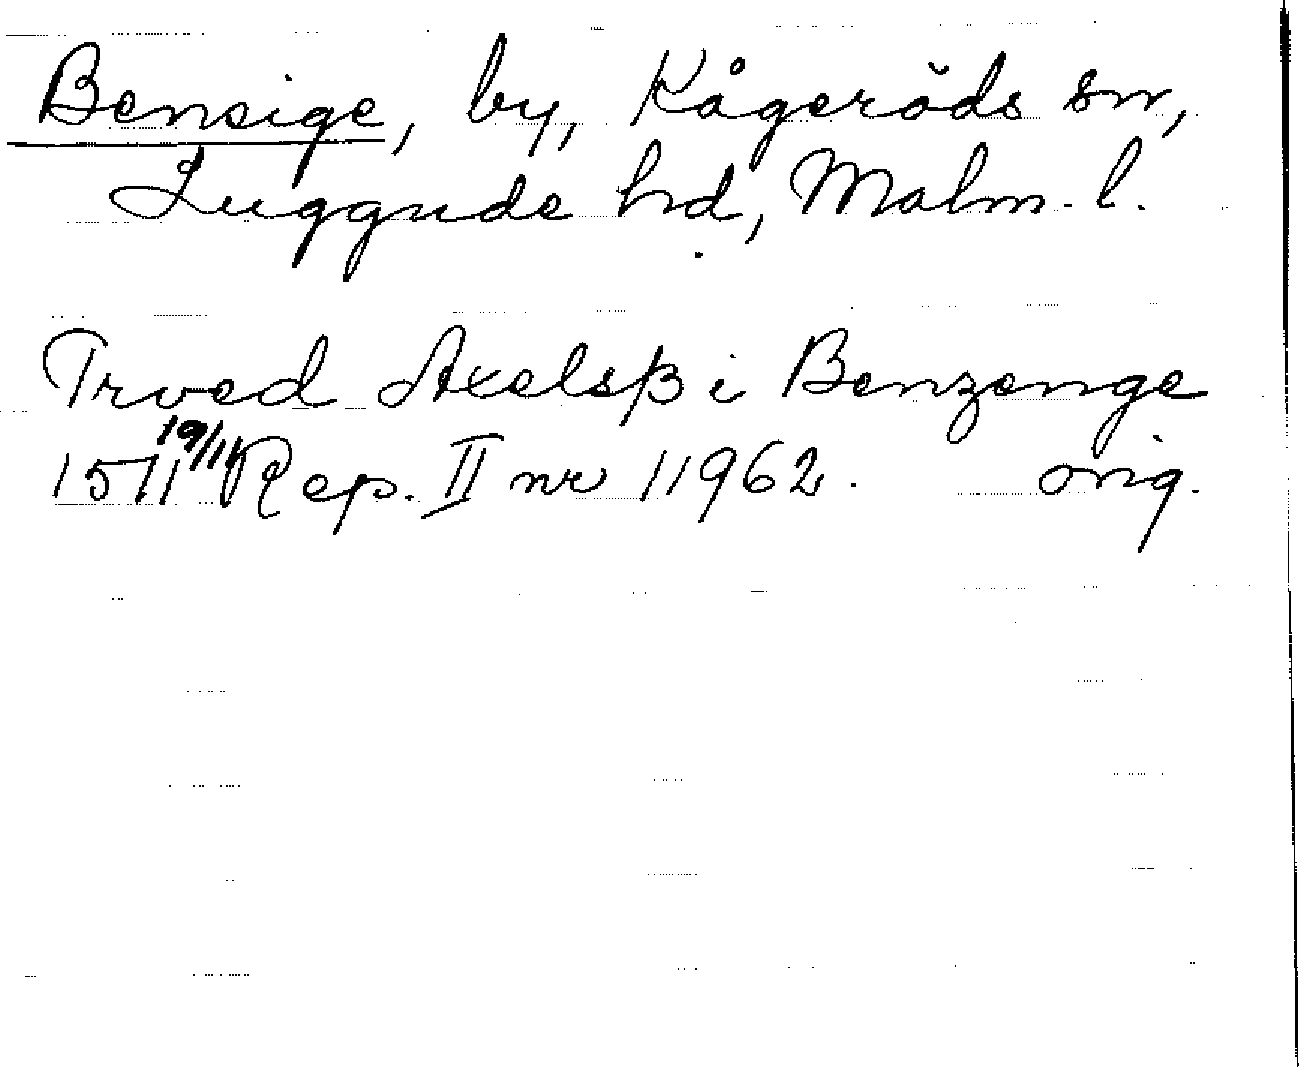 Bensige, by, Kågeröds sn,
Luggude hd, Malm. l.
Trved Axelsß i Benzenge
1511 19/11 Rep. II nr 11962. orig.